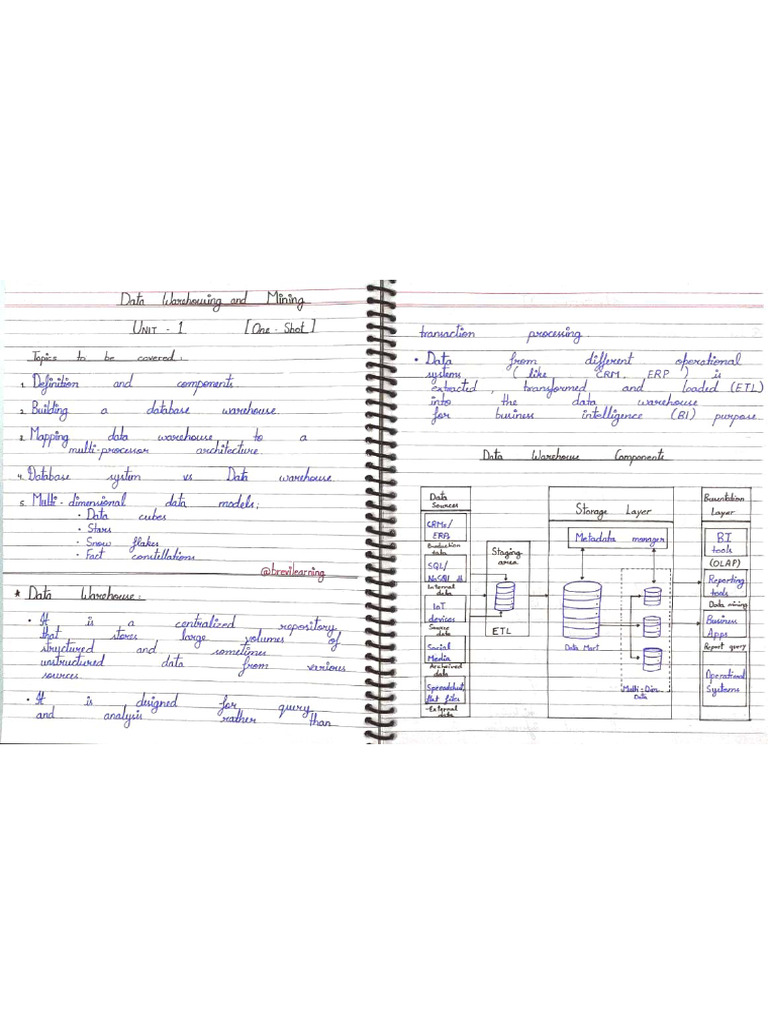 Data Warehousing and Mining
UNIT - 1 [One - Shot]
Topics to be covered:
1. Definition and components
2. Building a database warehouse
3. Mapping data warehouse to a
multi-processor architecture
4. Database system vs Data warehouse
5. Multi-dimensional data models;
• Data cubes
• Stars
• Snow flakes
• Fact constellations
@brevilearning
* Data Warehouse:
• It is a centralized repository
that stores large volumes of
structured and sometimes
unstructured data from various
sources.
• It is designed for query
and analysis rather than
transaction processing.
• Data from different operational
systems (like CRM, ERP) is
extracted, transformed and loaded (ETL)
into the data warehouse
for business intelligence (BI) purpose.
Data Warehouse Components
Data
Sources
CRMs/
ERPs
Production
data
SQL/
NoSQL db
Internal
data
IoT
devices
Source
data
Social
Media
Archeived
data
Spreadsheet,
flat files
External
data
Staging
area
ETL
Storage Layer
Metadata manager
Data Mart
Multi-Dim
Data
Presentation
Layer
BI
tools
(OLAP)
Reporting
tools
Data mining
Business
Apps
Report query
Operational
Systems